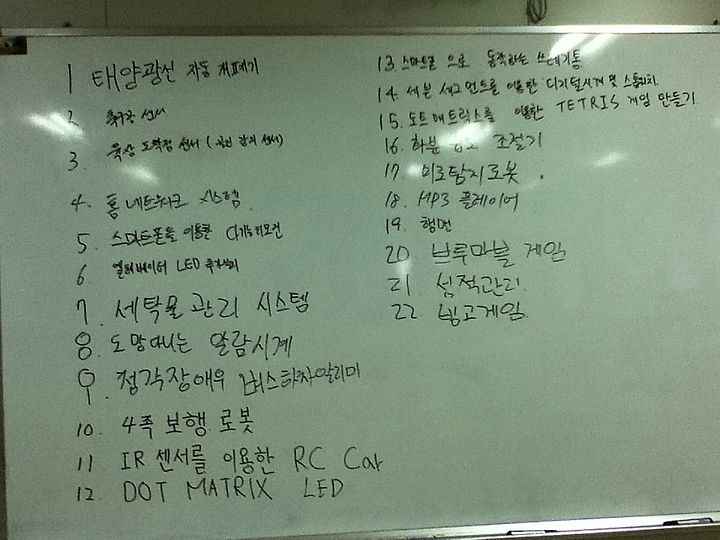 1 태양광선 자동 개폐기
2 축구공 센서
3. 육상 도착점 센서 (라인 감지 센서)
4. 홈 네트워크 시스템
5. 스마트폰을 이용한 다기능리모컨
6 엘리베이터 LED
7. 세탁물 관리 시스템
8. 도망다니는 알람시계
9. 청각장애우 버스하차알리미
10. 4족 보행 로봇
11 IR 센서를 이용한 RC Car
12. DOT MATRIX LED
13. 스마트폰 으로 동작하는 쓰레기통
14. 세븐 세그먼트를 이용한 디지털시계 및 스톱워치
15. 도트매트릭스를 이용한 TETRIS 게임 만들기
16. 화분 조절기
17. 미로탐지로봇.
18. MP3 플레이어
19.
20 브루마블 게임
21 성적관리.
22 빙고게임.